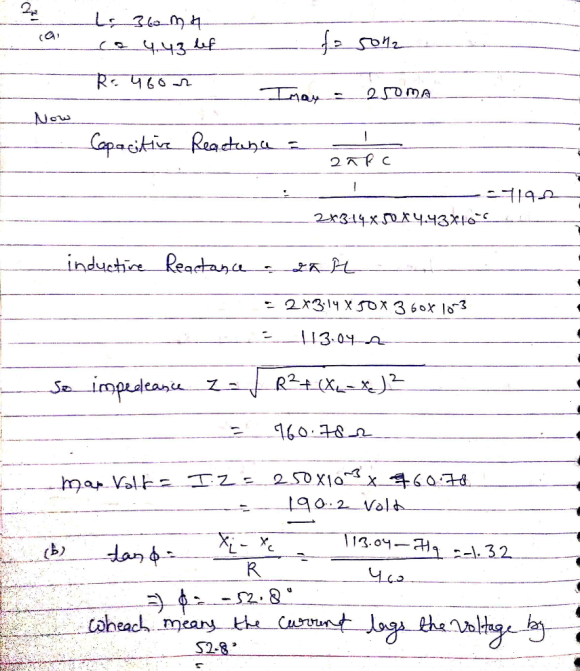 2.
(a) L = 360 mH
C = 4.43 μF f = 50Hz
R = 460 Ω
Imax = 250mA
Now
Capacitive Reactance = 1 / 2πfC
= 1 / 2×3.14×50×4.43×10⁻⁶ = 719Ω
inductive Reactance = 2πfL
= 2×3.14×50×360×10⁻³
= 113.04 Ω
So impedeance Z = √R²+(X_L-X_c)²
= 760.78 Ω
max Volt = IZ = 250×10⁻³ × 760.78
= 190.2 Volt
(b) tanφ = X_L - X_c / R = 113.04-719 / 460 = -1.32
⇒ φ = -52.8°
which means the current lags the voltage by
52.8°